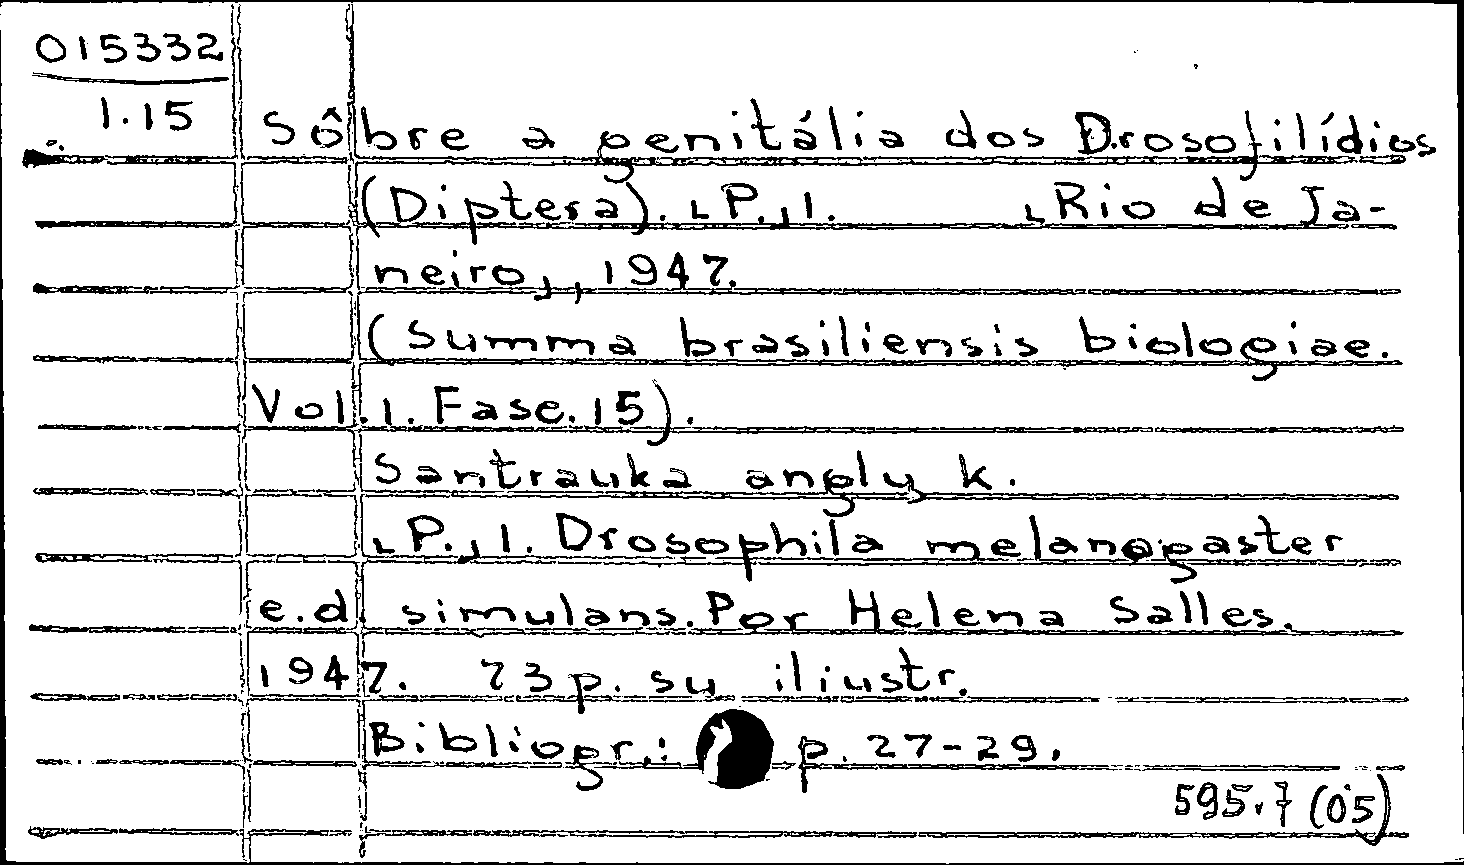 015332
1.15
Sôbre a genitália dos Drosofilídios
(Diptera). [P.] 1. [Rio de Ja-
neiro], 1947.
(Summa brasiliensis biologiae.
Vol. 1. Fasc. 15).
Santrauka anglų k.
[P.] 1. Drosophila melanogaster
e.d. simulans. Por Helena Salles.
1947. 73 p. su iliustr.
Bibliogr.: p. 27-29.
595.7 (05)